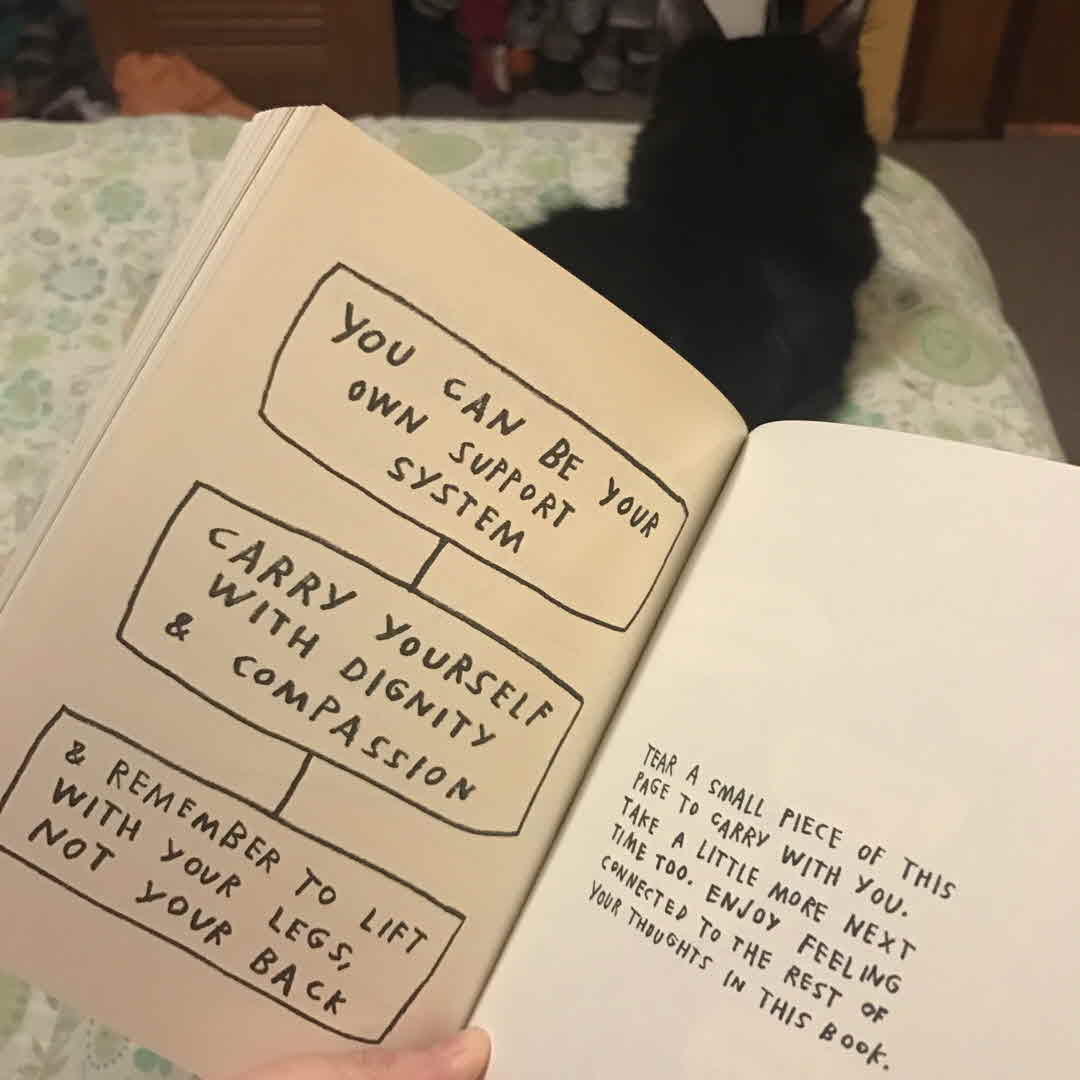 YOU CAN BE YOUR
OWN SUPPORT
SYSTEM
CARRY YOURSELF
WITH DIGNITY
& COMPASSION
& REMEMBER TO LIFT
WITH YOUR LEGS,
NOT YOUR BACK
TEAR A SMALL PIECE OF THIS
PAGE TO CARRY WITH YOU.
TAKE A LITTLE MORE NEXT
TIME TOO. ENJOY FEELING
CONNECTED TO THE REST OF
YOUR THOUGHTS IN THIS BOOK.